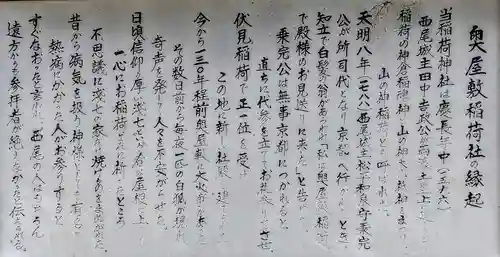 奥屋敷稲荷社の縁起
当稲荷神社は慶長年中(一五九六)
西尾城主田中吉政公が
稲荷の神倉稲神、山の神
山の神稲荷と呼ばれ
天明八年(一七八八)西尾城主松平和泉守乗完
公が所司代になり京都へ行
知立で白髪の翁があらわれ「私は奥屋敷稲荷
で殿様のお見送りに来た」と告げ
乗完公は無事京都につかれると
直ちに代参を立ててお礼参りさせ
伏見稲荷で正一位を受け
この地に新しい社殿を建
今から三〇年程前奥屋敷に大火があった
その数日前から毎夜一匹の白狐が現れ
奇声を発して人々を不安がらせた。
日頃信仰の厚い浅七
一心にお稲荷を祈ったところ
不思議に浅七の家は焼け
昔から病気を扱う神様として有名
熱病にかかった人がお参りすると
すぐなおったと言われ、西尾の人はもちろん
遠方からも参拝者が絶えなかったと伝えられる。